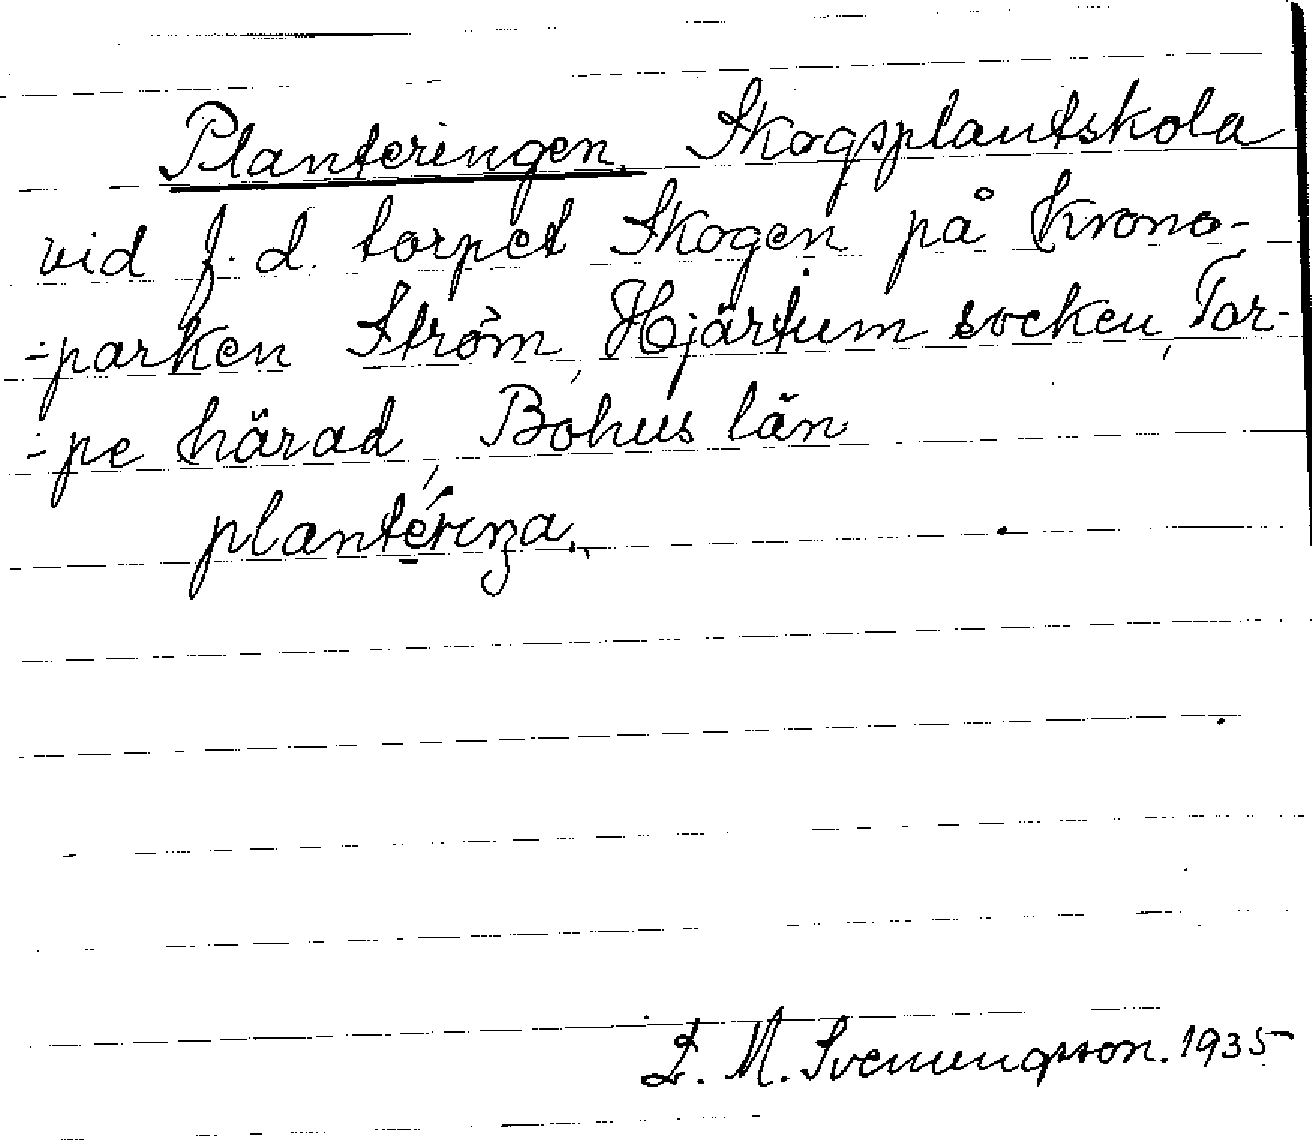 Planteringen. Skogsplantskola
vid f. d. torpet Skogen på Krono-
-parken Ström, Hjärtum socken, Tor-
-pe härad, Bohus län
plantérınza.
L. M. Svenungsson. 1935